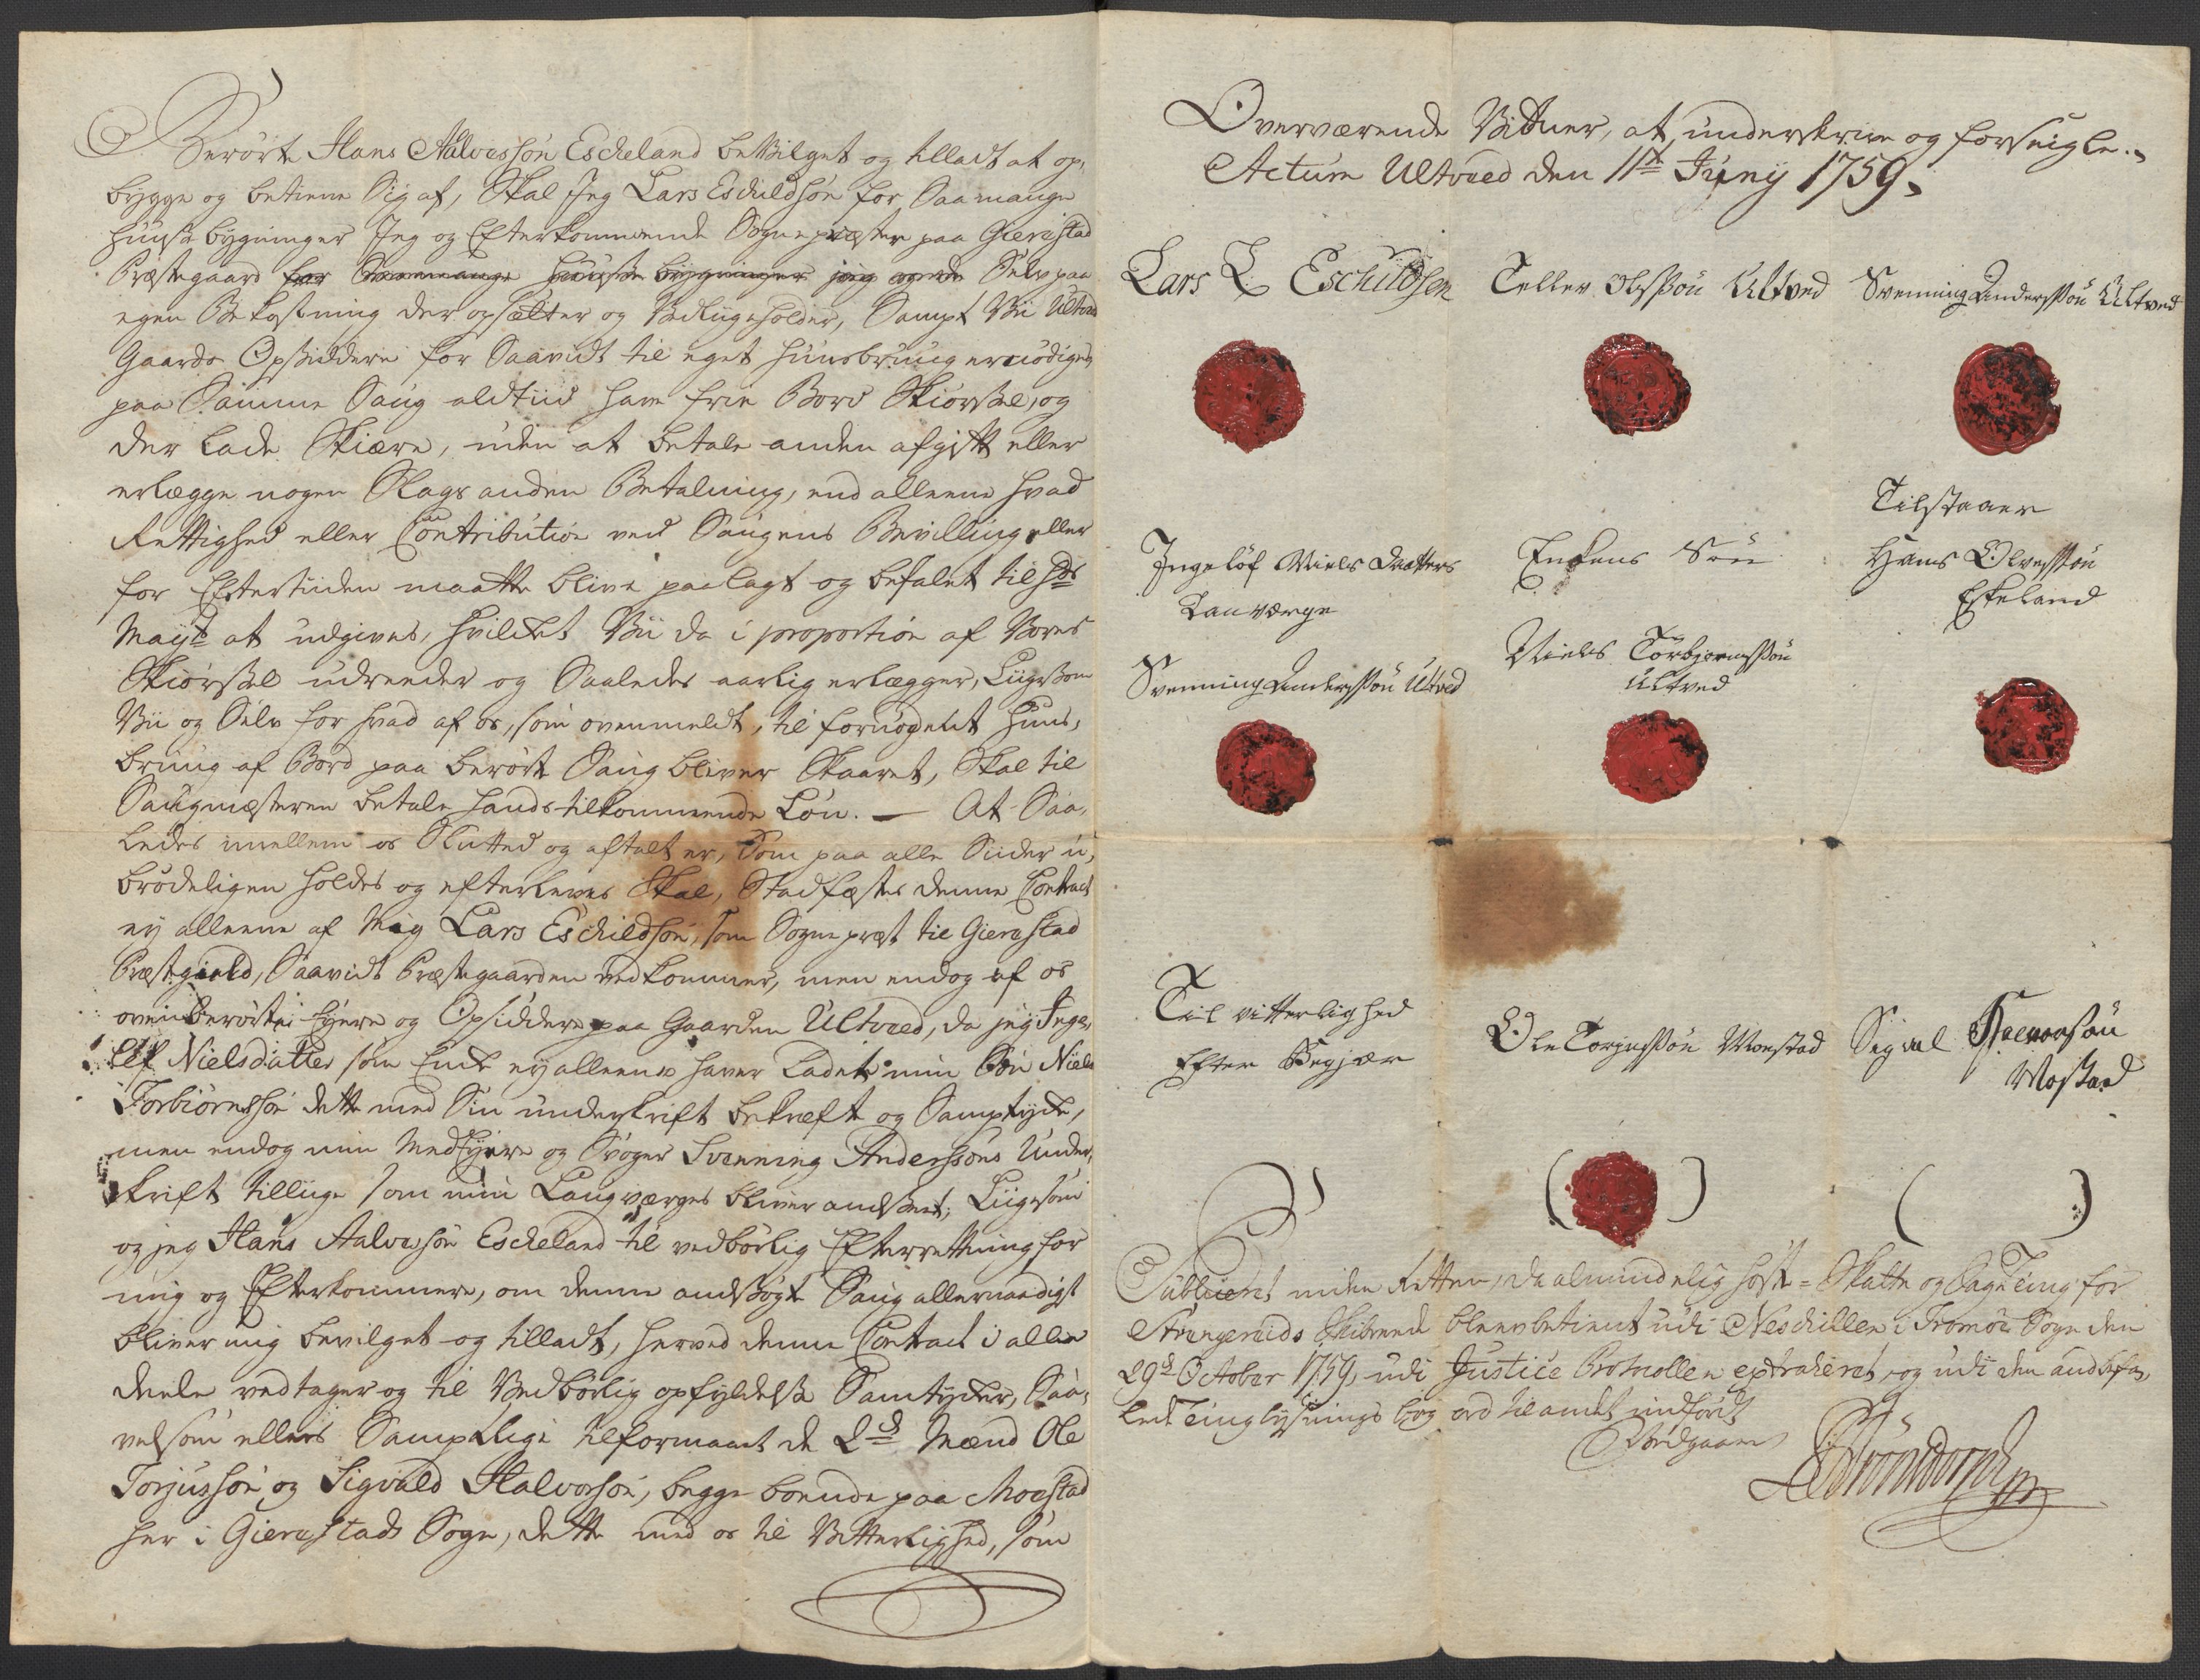 Berørte Hans Aalvesøn Escheland bevilget og tilladt at op-
bygge og betiene Sig af, Skal Jeg Lars Eschildsøn for Saa mange
huuse bygninger Jeg og Efterkommende Sogne præster paa Gierestad
Præstegaard for Saa mange huuse bygninger jeg og de Selv paa
egen Bekostning der opsætter og Vedligeholder, Sampt Vii Ultved
Gaards Opsiddere for Saavidt til eget huusbruug er nødiget
paa Samme Saug aldtiid have frie Bord Skiørsel, og
der lade Skiære, uden at betale anden afgift eller
erlægge nogen Slags anden Betalning, end alleene hvad
Rettighed eller Contribution ved Saugens Bevilling eller
for Eftertiiden maatte blive paalagt og befalet til hds
Mayt at udgives, hvilcket Vii da i proportion af Vores
Skiørsel udreeder og Saaledes aarlig erlægger, Liigesom
Vii og Selv for hvad af os, som ovenmeldt, til fornøyelit huus-
bruug af Bord paa berørte Saug bliver Skaaret, Skal til
Saugmesteren betale hands tilkommende Løn. — At Saa-
ledes imellem os Sluttet og aftalt er, Som paa alle Siider u-
brødeligen holdes og efterleves Skal, Stadfæstes denne Contract
ey alleene af Mig Lars Eschildsøn, som Sogne præst til Gierestad
Præstegield, Saavidt Præstegaarden vedkommer, men endog af os
ovenberørte Eyere og Opsiddere paa Gaarden Ultved, da jeg Inge-
lef Nielsdatter som Encke ey alleene haver ladet min Søn Niels
Torbiørnsøn dette med Sin underskrift bekræft og Samptycke,
men endog min Medeyere og Svoger Svenning Andersøns Under-
skrift tillige som min Laugværges bliver andseet; Liigesom
og jeg Hans Aalvesøn Escheland til vedbørlig Efterrettning for
mig og Efterkommere, om denne andsøgte Saug allernaadigst
bliver mig bevilget og tilladt, herved denne Contract i alle
deele vedtager og til Vedbørlig opfyldelse Samtycker, Saa-
velsom ellers Samptlige tilformaaet de 2de Mænd Ole
Torjusøn og Sigvald Halvorsøn, begge boende paa Moestad
her i Gierestads Sogn, dette med os til Vitterlighed, som
Overværende Vitner, at underskrive og forseigle.
Actum Ultved den 11te Juny 1759.
Lars L. Eschildsen Tellev Olssøn Ultved Svenning Anderssøn Ultved
Tilstaaer
Ingeløf Niels Datters Enkens Søn Hans Olvessøn
Lauværge Eskeland
Svenning Anderssøn Ultved Niels Torbjørnssøn
Ultved
Til vitterlighed Ole Torjussøn Moestad Sigval Halvorsøn
Efter Begjær Mostad
( ) ( )
Publiceret inden Retten, da almindelig høste-Skatte og Sage Ting for
Strengereids Skibreede blev betient udi Neschillen i Tromøe Sogn den
29de October 1759, udi Justice Protocollen extraheret, og udi den andbefa-
lede Tinglysnings bog ord til andet indført